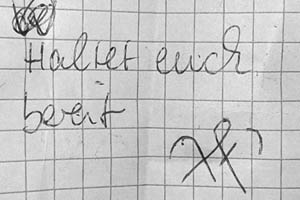 Haltet euch
bereit